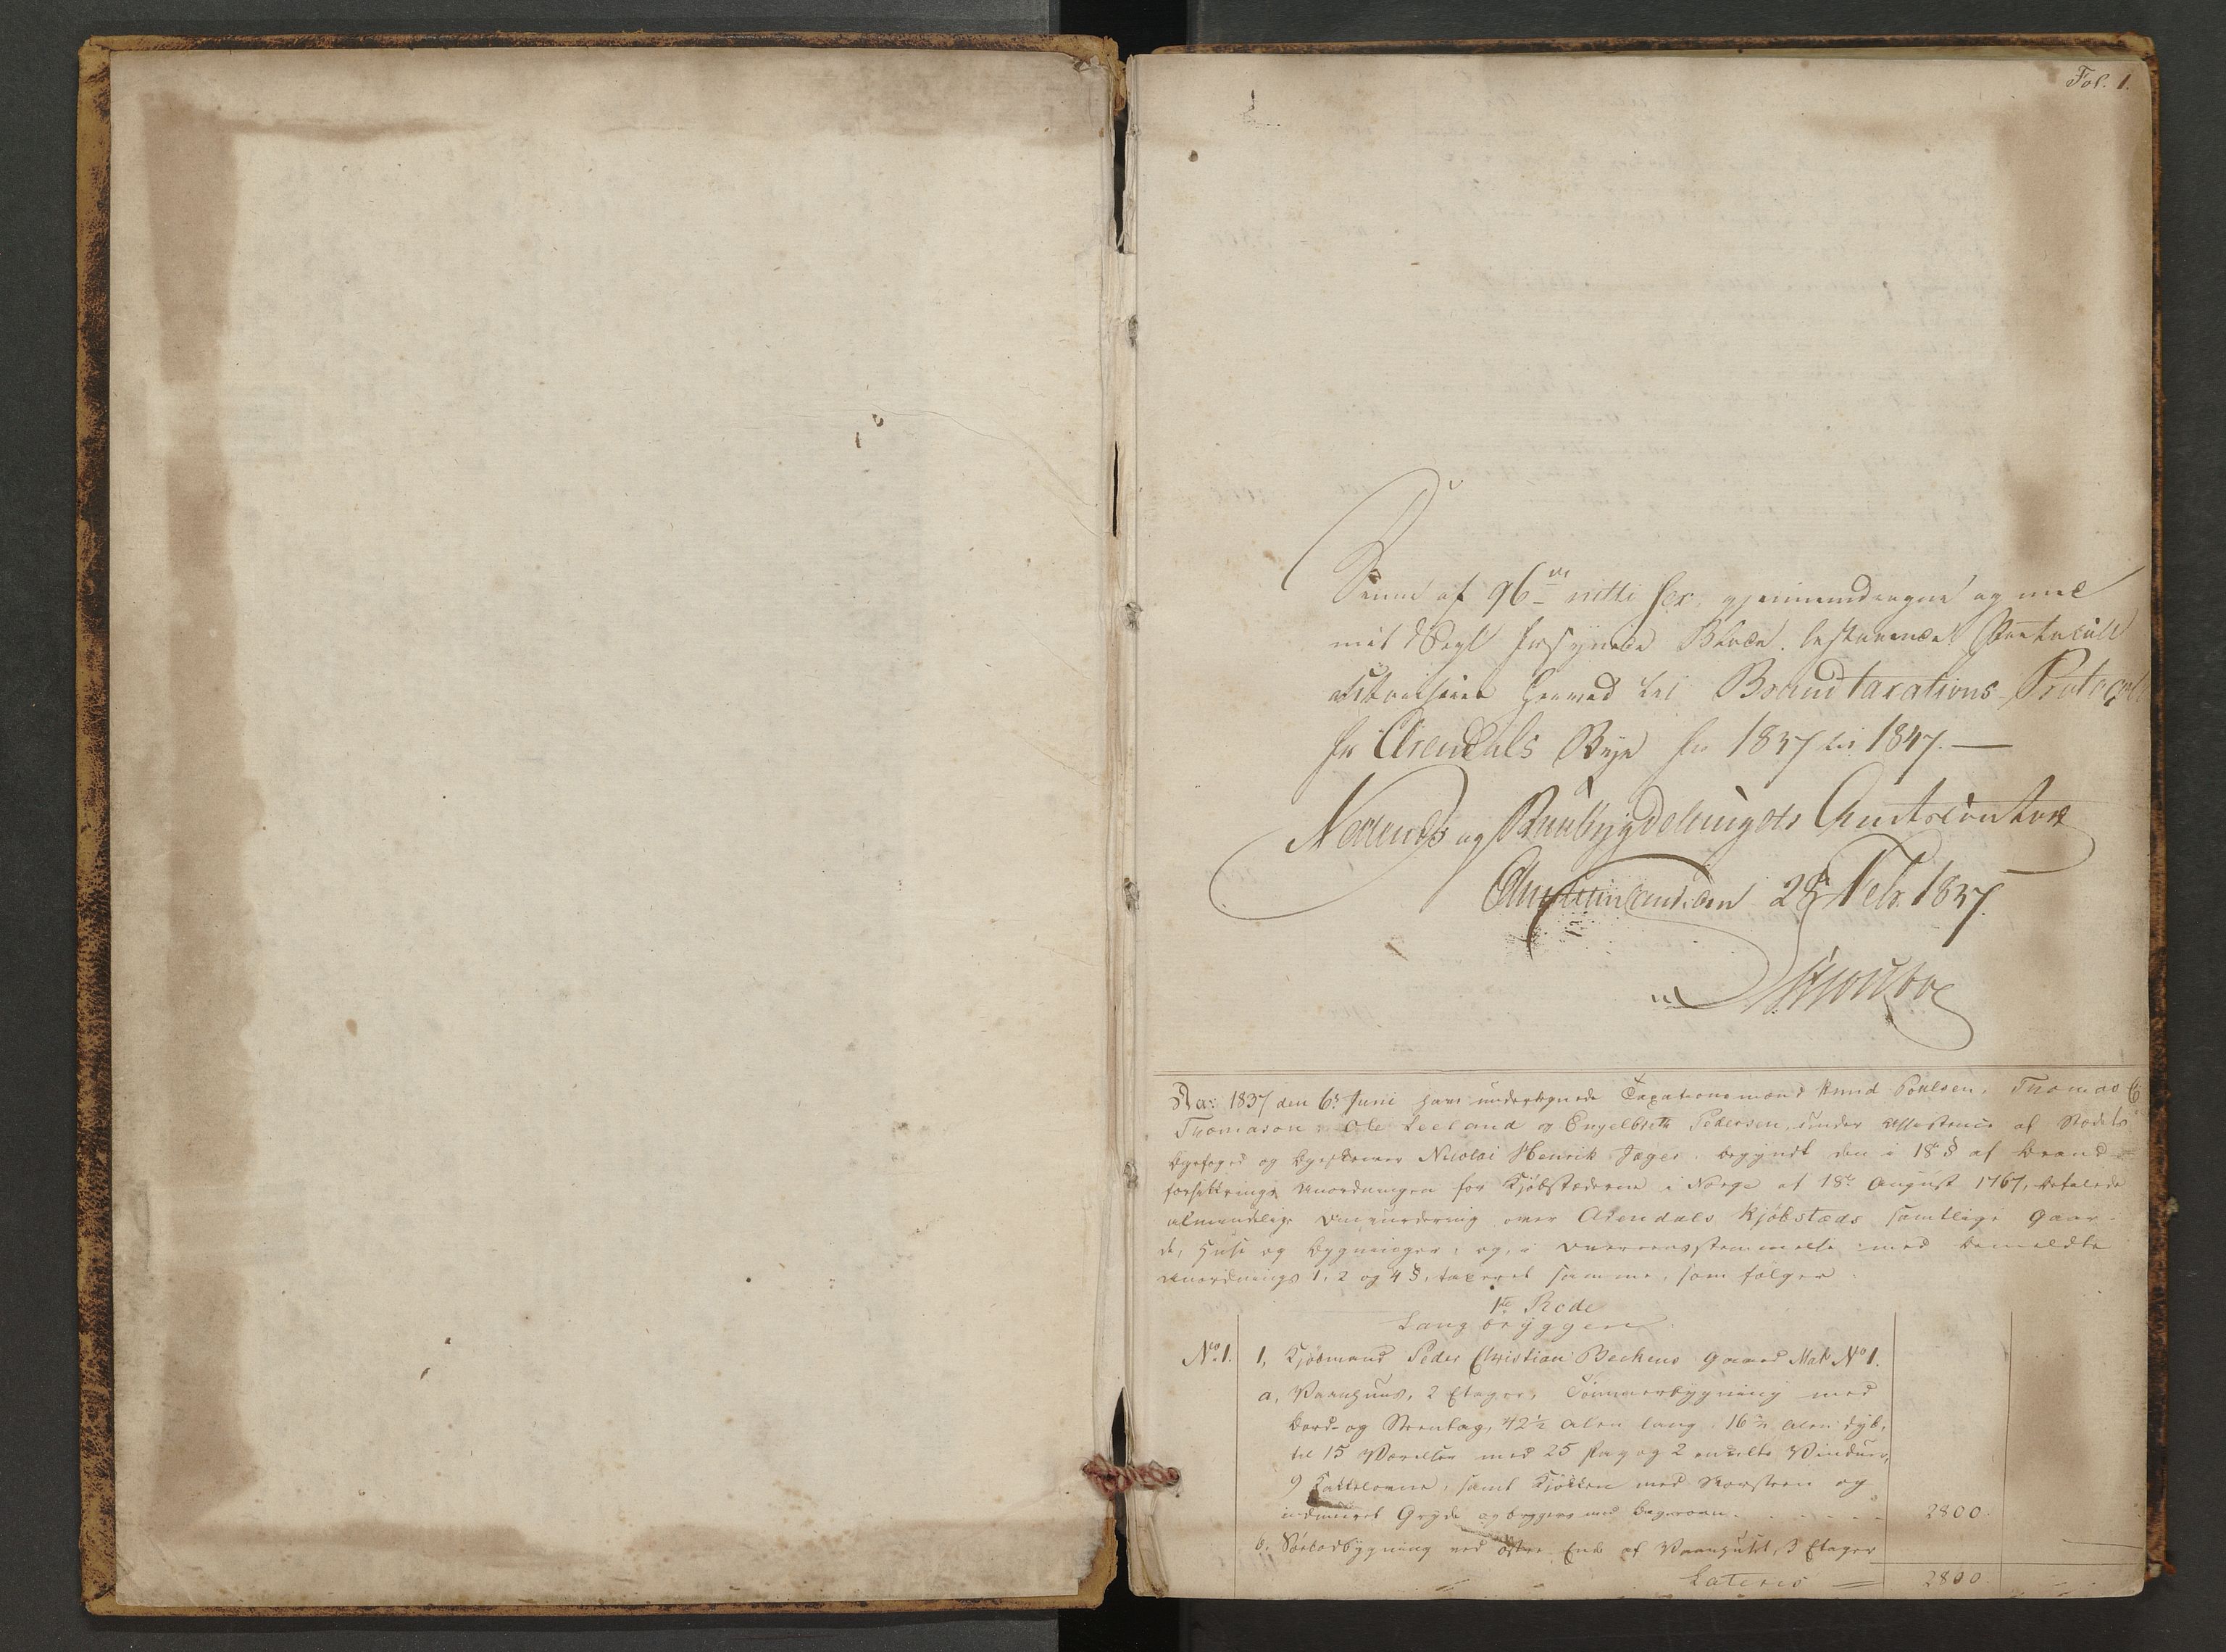 Fol. 1.
Denne af 96 nitti sex, gjennemdragne og med
mit Segl forsynede Blade bestaaende Protocoll
authoriseres herved til Brandtaxations-Protocol
for Arendals Bye fra 1837 til 1847. —
Nedenes og Raabygdelaugets Amtscontoir
Christiansand den 28 Febr. 1837.
Aar 1837 den 6te Juni have undertegnede Taxationsmænd Knud Poulsen, Thomas
Thomason, Ole Leeland og Engelbreth Pedersen, under Assistence af Stædets
Byefoged og Byeskriver Nicolai Henrik Jæger, begyndt den i 18 § af Brand-
forsikkrings Anordningen for Kjøbstæderne i Norge af 18de August 1767, befalede
almindelige Omvurdering over Arendals Kjøbstæds samtlige Gaar-
de, Huse og Bygninger, og i Overeensstemmelse med bemeldte
Anordnings 1, 2 og 4 §, taxeret samme, som følger:
1te Rode
Langbryggen.
No. 1. 1, Kjøbmand Peder Christian Beckens Gaard Matr No 1.
a, Vaanhuus, 2 Etager, Tømmerbygning med
Bord- og Steentag, 42½ Alen lang, 16½ Alen dyb,
til 15 Værelser med 25 Fag og 2 enkelte Vinduer,
9 Kakkelovne, samt Kjøkken med Skorsteen og
indmuret Gryde og Bryggers med Bagerovn . . . . . . 2800.
b. Søebodbygning ved østre Ende af Vaanhuset, 3 Etager
Lateris 2800.